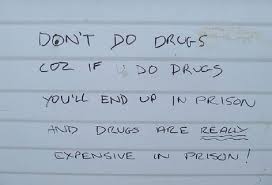 DON'T DO DRUGS
COZ IF U DO DRUGS
YOU'LL END UP IN PRISON
AND DRUGS ARE REALLY
EXPENSIVE IN PRISON!